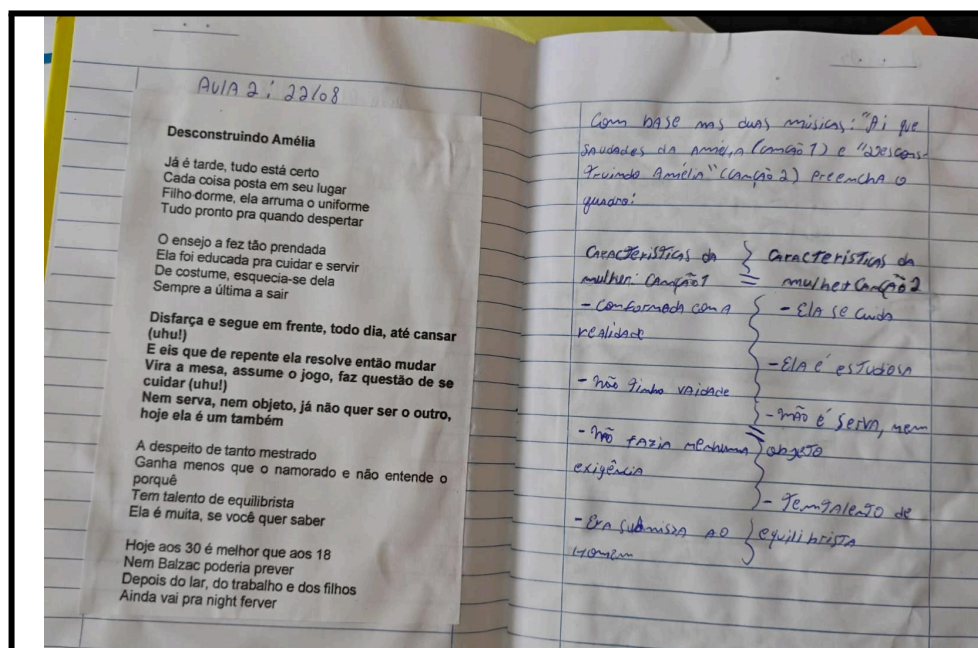 AULA 2: 22/08
Desconstruindo Amélia
Já é tarde, tudo está certo
Cada coisa posta em seu lugar
Filho dorme, ela arruma o uniforme
Tudo pronto pra quando despertar
O ensejo a fez tão prendada
Ela foi educada pra cuidar e servir
De costume, esquecia-se dela
Sempre a última a sair
Disfarça e segue em frente, todo dia, até cansar
(uhu!)
E eis que de repente ela resolve então mudar
Vira a mesa, assume o jogo, faz questão de se
cuidar (uhu!)
Nem serva, nem objeto, já não quer ser o outro,
hoje ela é um também
A despeito de tanto mestrado
Ganha menos que o namorado e não entende o
porquê
Tem talento de equilibrista
Ela é muita, se você quer saber
Hoje aos 30 é melhor que aos 18
Nem Balzac poderia prever
Depois do lar, do trabalho e dos filhos
Ainda vai pra night ferver
Com base nas duas músicas: "Ai que
saudades da Amélia (canção 1) e "Descons-
truindo Amélia" (canção 2) preencha o
quadro:
Características da
mulher: Canção 1
- Conformada com a
realidade
- não tinha vaidade
- não fazia nenhuma
exigência
- Era submissa ao
homem
Características da
mulher Canção 2
- Ela se cuida
- Ela é estudosa
- não é serva, nem
objeto
- Tem talento de
equilibrista